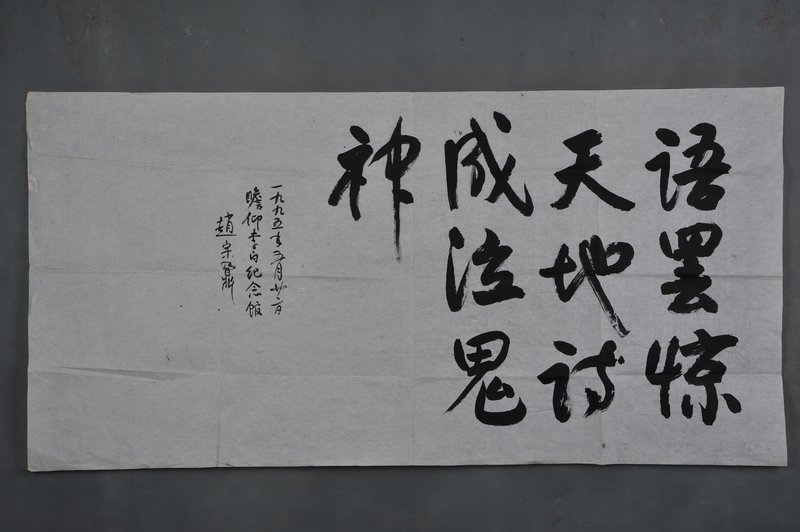 语罢惊
天地诗
成泣鬼
神
一九九五年五月廿二日
瞻仰李白纪念馆
赵宗鼐